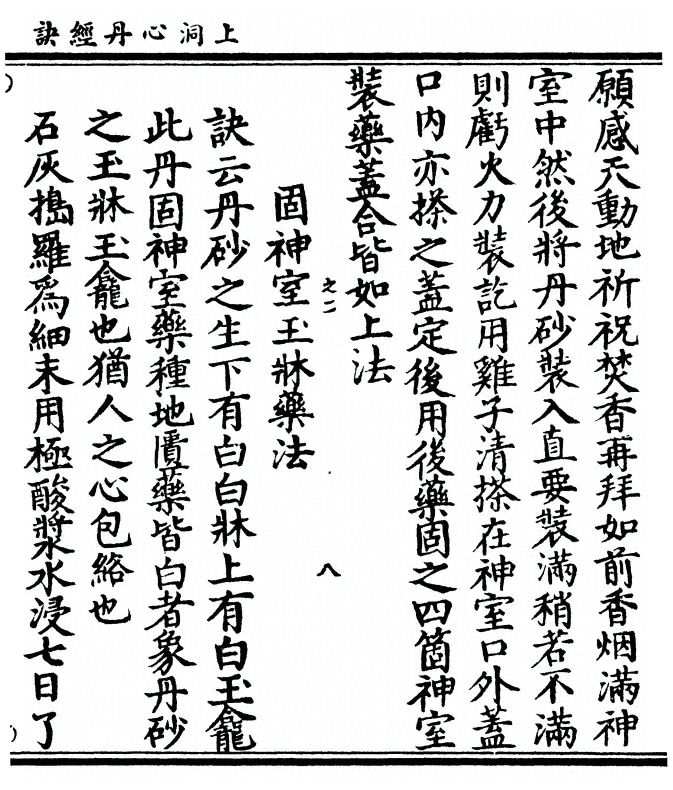 上洞心丹經訣
願感天動地祈祝焚香再拜如前香烟滿神
室中然後將丹砂裝入直要裝滿稍若不滿
則虧火力裝訖用雞子清搽在神室口外蓋
口内亦搽之蓋定後用後藥固之四箇神室
裝藥蓋合皆如上法
之二
八
固神室玉牀藥法
訣云丹砂之生下有白白牀上有白玉龕
此丹固神室藥種地匱藥皆白者象丹砂
之玉牀玉龕也猶人之心包絡也
石灰搗羅爲細末用極酸漿水浸七日了